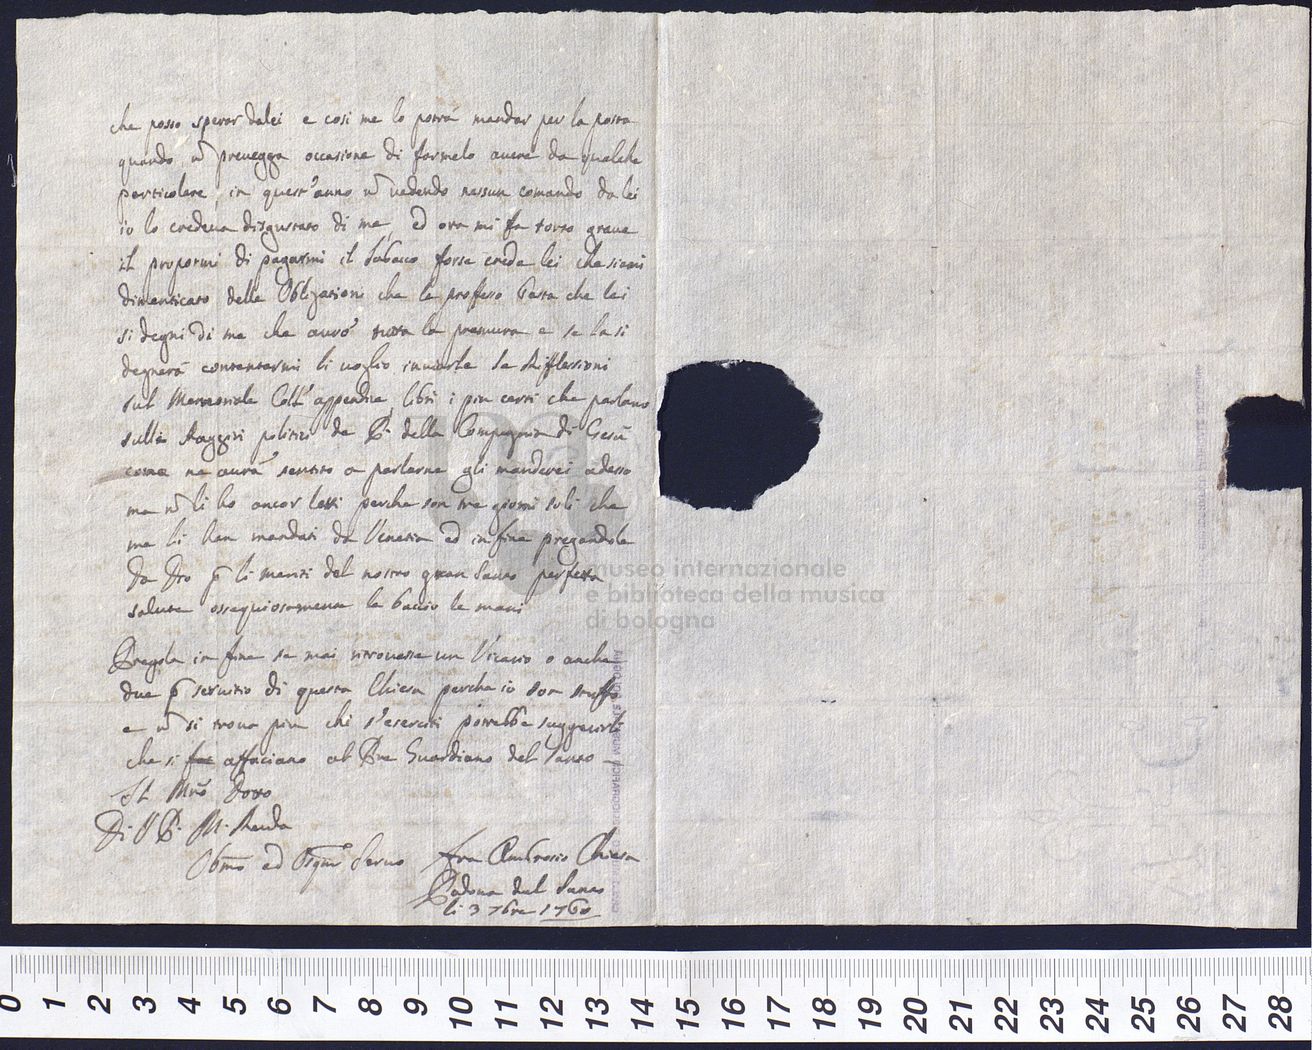 che posso sperar dalei e cosi me lo potrà mandar per la posta
quando ñ prevegga occasione di farmelo avere da qualche
particolare, in quest'anno ñ vedendo nessun comando da lei
io lo credeva disgustato di me, ed ora mi fa torto grave
il propormi di pagarmi il tabacco forse crede lei che siami
dimenticato delle Obligationi che le professo basta che lei
si degni di me che avrò tutta la premura e se la si
degnerà contentarmi li voglio inviarle le Rifflessioni
sul Memoriale Coll' appendice, libri i piu certi che parlano
sulli Raggiri politici de P. della Compagnia di Gesù
come ne avrà sentito a parlarne gli manderei adesso
ma ñ li ho ancor letti perche son tre giorni soli che
me li han mandati da Venetia ed in fine pregandole
da Dio p li meriti del nostro gran Santo perfetta
salute ossequiosamente le baccio le mani
Pregola in fine se mai ritrovasse un Vicario o anche
due p servitio di questa Chiesa perche io son stuffo
e ñ si trova piu chi s'eserciti potrebbe suggerirli
che si affaciano al Pre Guardiano del Santo
Di V P. M. Reuda
Obmo ed Servo fra Ambrosio Chiesa
Padova dal Santo
li 3 7bre 1760
museo internazionale
e biblioteca della musica
di bologna
0 1 2 3 4 5 6 7 8 9 10 11 12 13 14 15 16 17 18 19 20 21 22 23 24 25 26 27 28